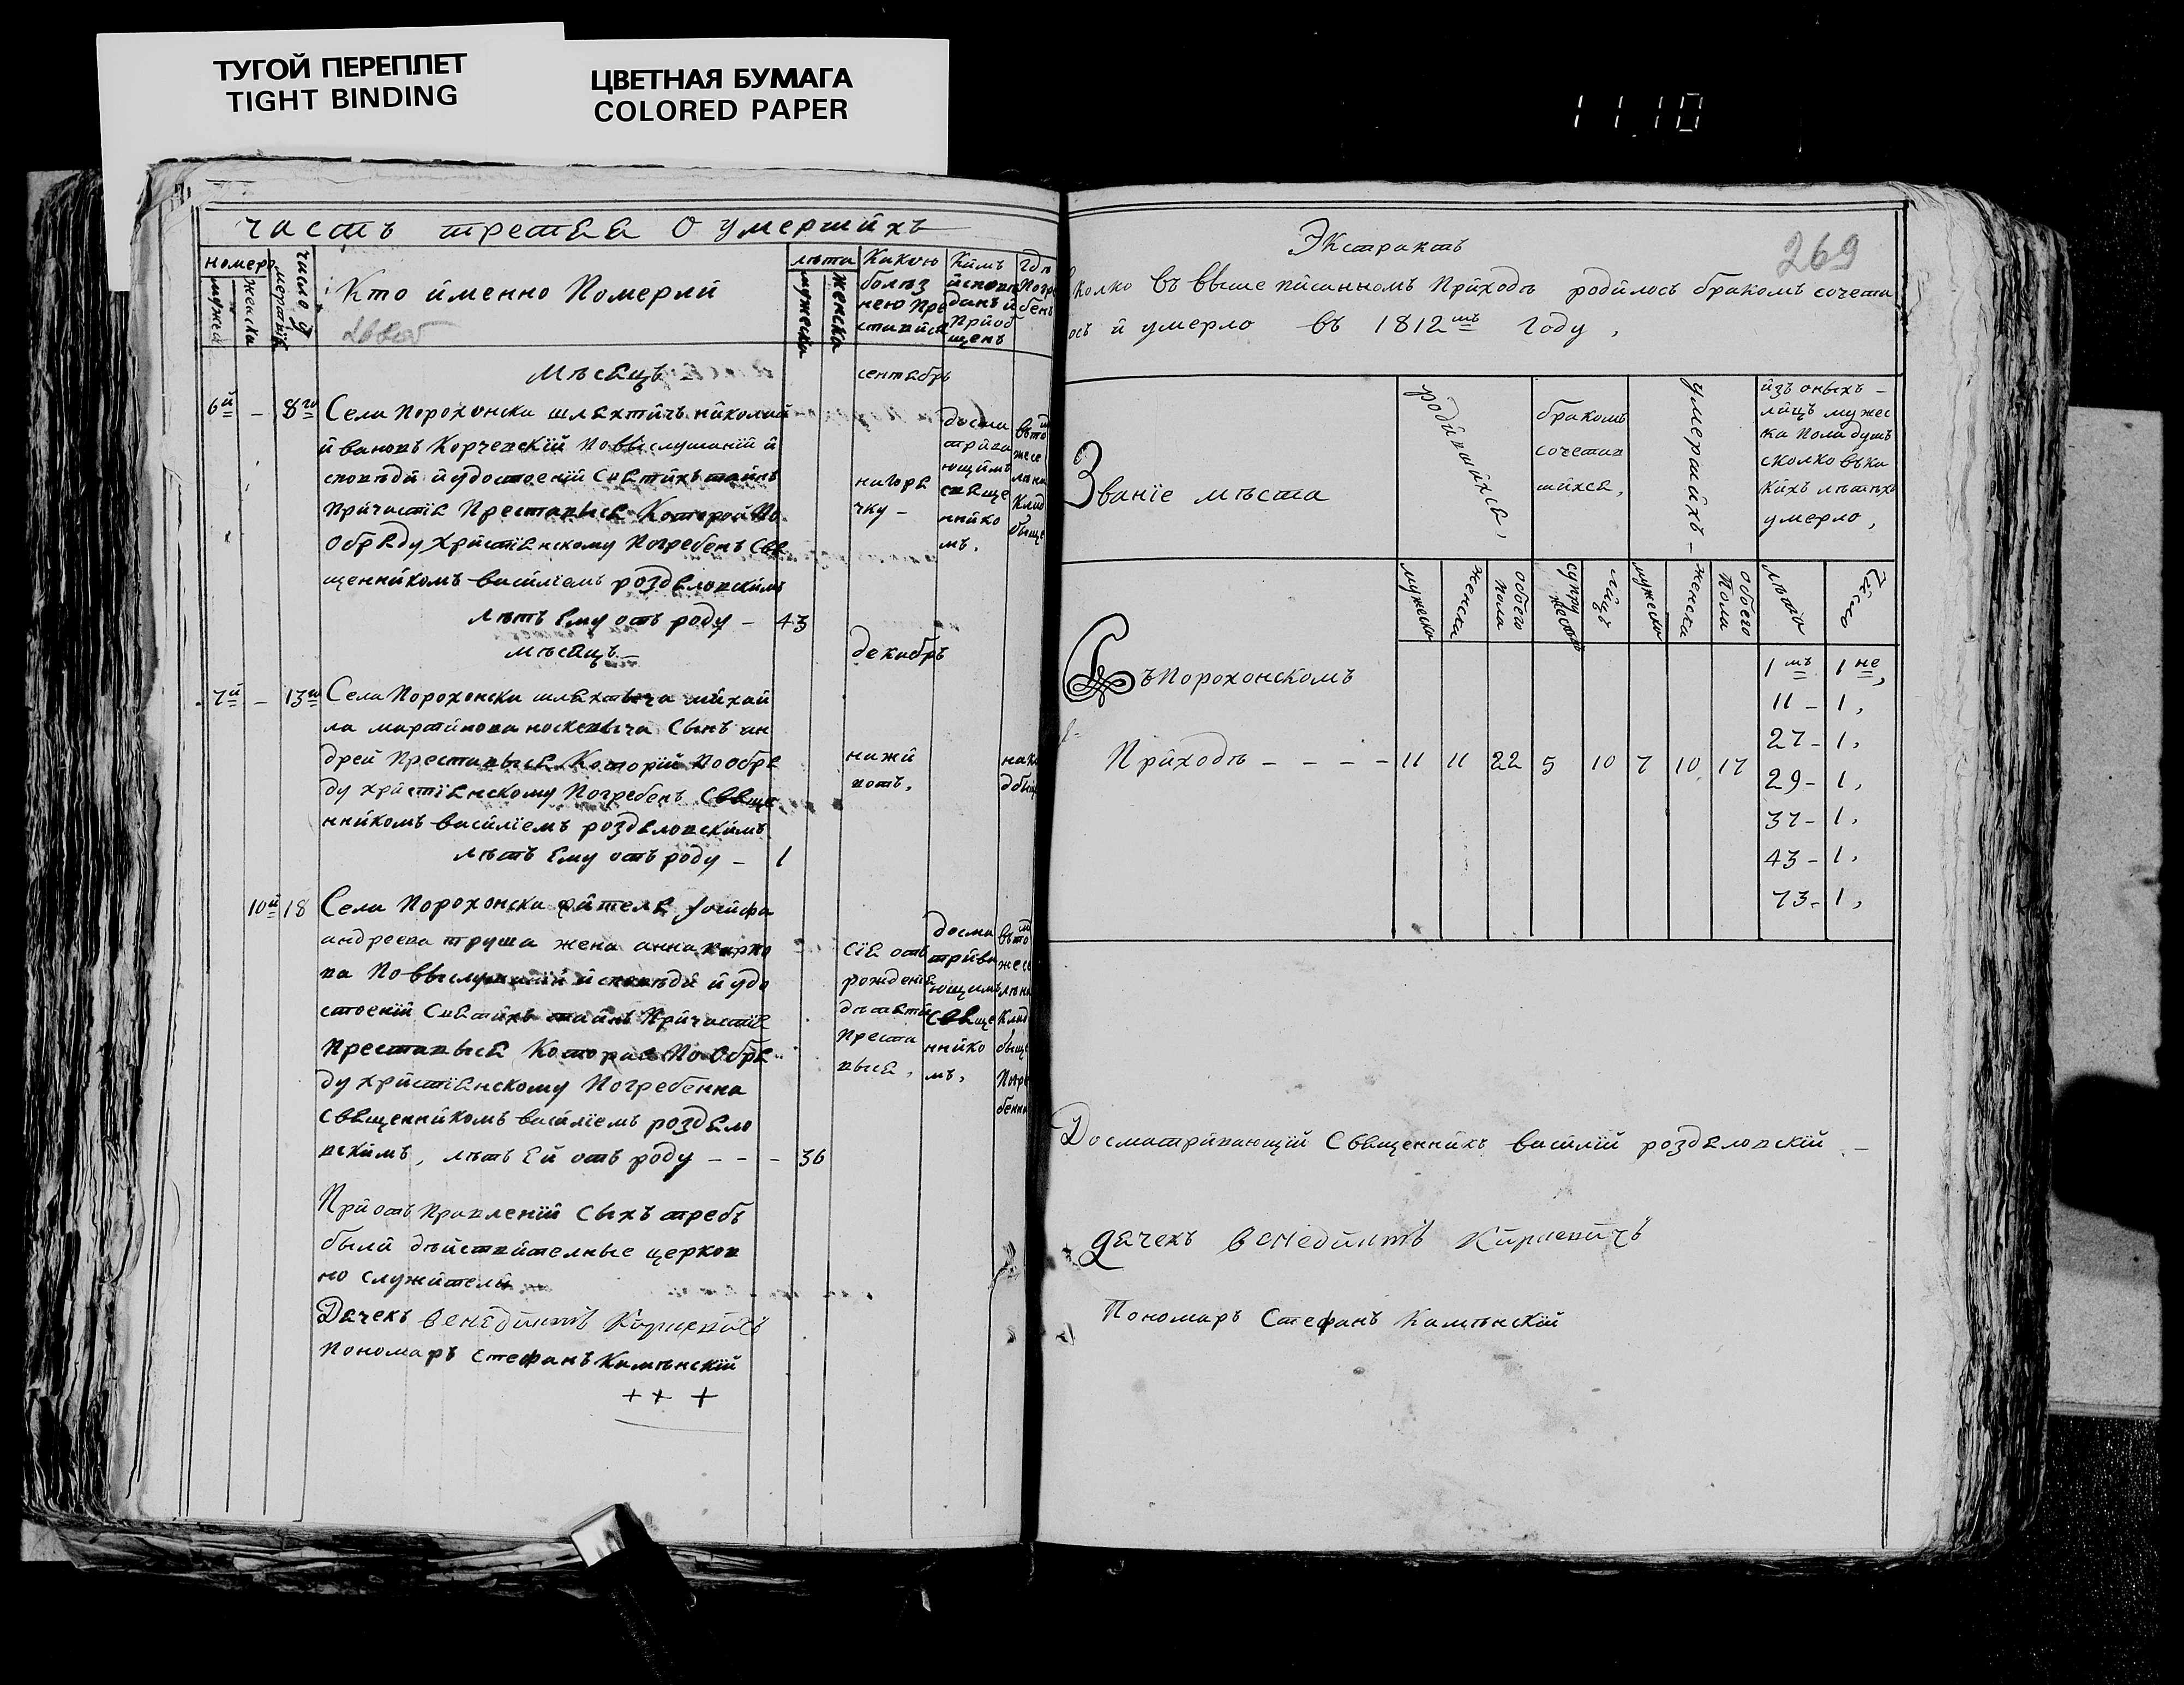 ТУГОЙ ПЕРЕПЛЕТ
TIGHT BINDING
ЦВЕТНАЯ БУМАГА
COLORED PAPER
11.10
часть третяя о умершихъ
номеръ
мужеска
женска
число умертвія
Кто именно Померли
лѣта
мужеска
женска
Какою болѣз
нею Пре
ставися
Кимъ
исповѣ
данъ и
Приоб
щенъ
Гдѣ
Погре
бенъ
Мѣсяцъ
сентябрь
6й – 8го Села Порохонска шляхтичъ николай
ивановъ Корчевскій По выслушаній и
сповѣди и удостоеній Святихъ таинъ
Причастія Преставыся Которой По
Обряду Христіянскому Погребенъ Свя
щенникомъ василіемъ роздяловскимъ
лѣтъ Ему отъ роду – 43
нагоря
чку –
досма
трива
ющимъ
свяще
ннико
мъ.
въ то
жесе
лѣна
Клад
бище
мѣсяцъ –
декабрь
7й – 13го Села Порохонска шляхтыча михай
ла мартинова носкевыча Сынъ ан
дрей Преставыся Которій По обря
ду христіянскому Погребенъ Свяще
нникомъ василіемъ роздяловскимъ
лѣтъ Ему отъ роду – 1
нажи
вотъ,
накл
дбыщ
10й 18 Села Порохонска жителя Іосифа
андреева труша жена анна карпо
ва По выслушаній исповѣди и удо
стоеній Святихъ таинъ Причастія
Преставыся Которая По Обря
ду христіянскому Погребенна
Священникомъ василіемъ роздяло
вскимъ, лѣтъ Ей отъ роду – – – 36
Сія отъ
рожденія
дѣтяти
Преста
выся,
досма
трива
ющимъ
Свяще
ннико
мъ,
въ то
жесе
лѣна
Клад
быще
Погре
бенна
При отъ Правленій Сыхъ требъ
были дѣйствителные церков
но служители
Дячекъ венедиктъ
Пономаръ Стефанъ Камѣнскій
+ + +
Экстрактъ
269
колко въ выше писанномъ Приходѣ родилось бракомъ сочета
ось и умерло въ 1812мъ году,
Званіе мѣста
родившихся,
бракомъ
сочетав
шихся,
умершихъ –
изъ оныхъ –
лицъ мужес
ка Пола душъ
сколко въ ка
кихъ лѣтѣхъ
умерло,
мужеска
женска
обоего Пола
супружествъ
лицъ
мужеска
женска
обоего Пола
лѣта
Число
Въ Порохонскомъ
Приходѣ – – – – 11 11 22 5 10 7 10 17
1мъ 1не,
11 – 1,
27 – 1,
29 – 1,
37 – 1,
43 – 1,
73 – 1,
Досматривающій Священникъ василій роздяловскій –
дячекъ венедиктъ
Пономаръ Стефанъ Камѣнскій